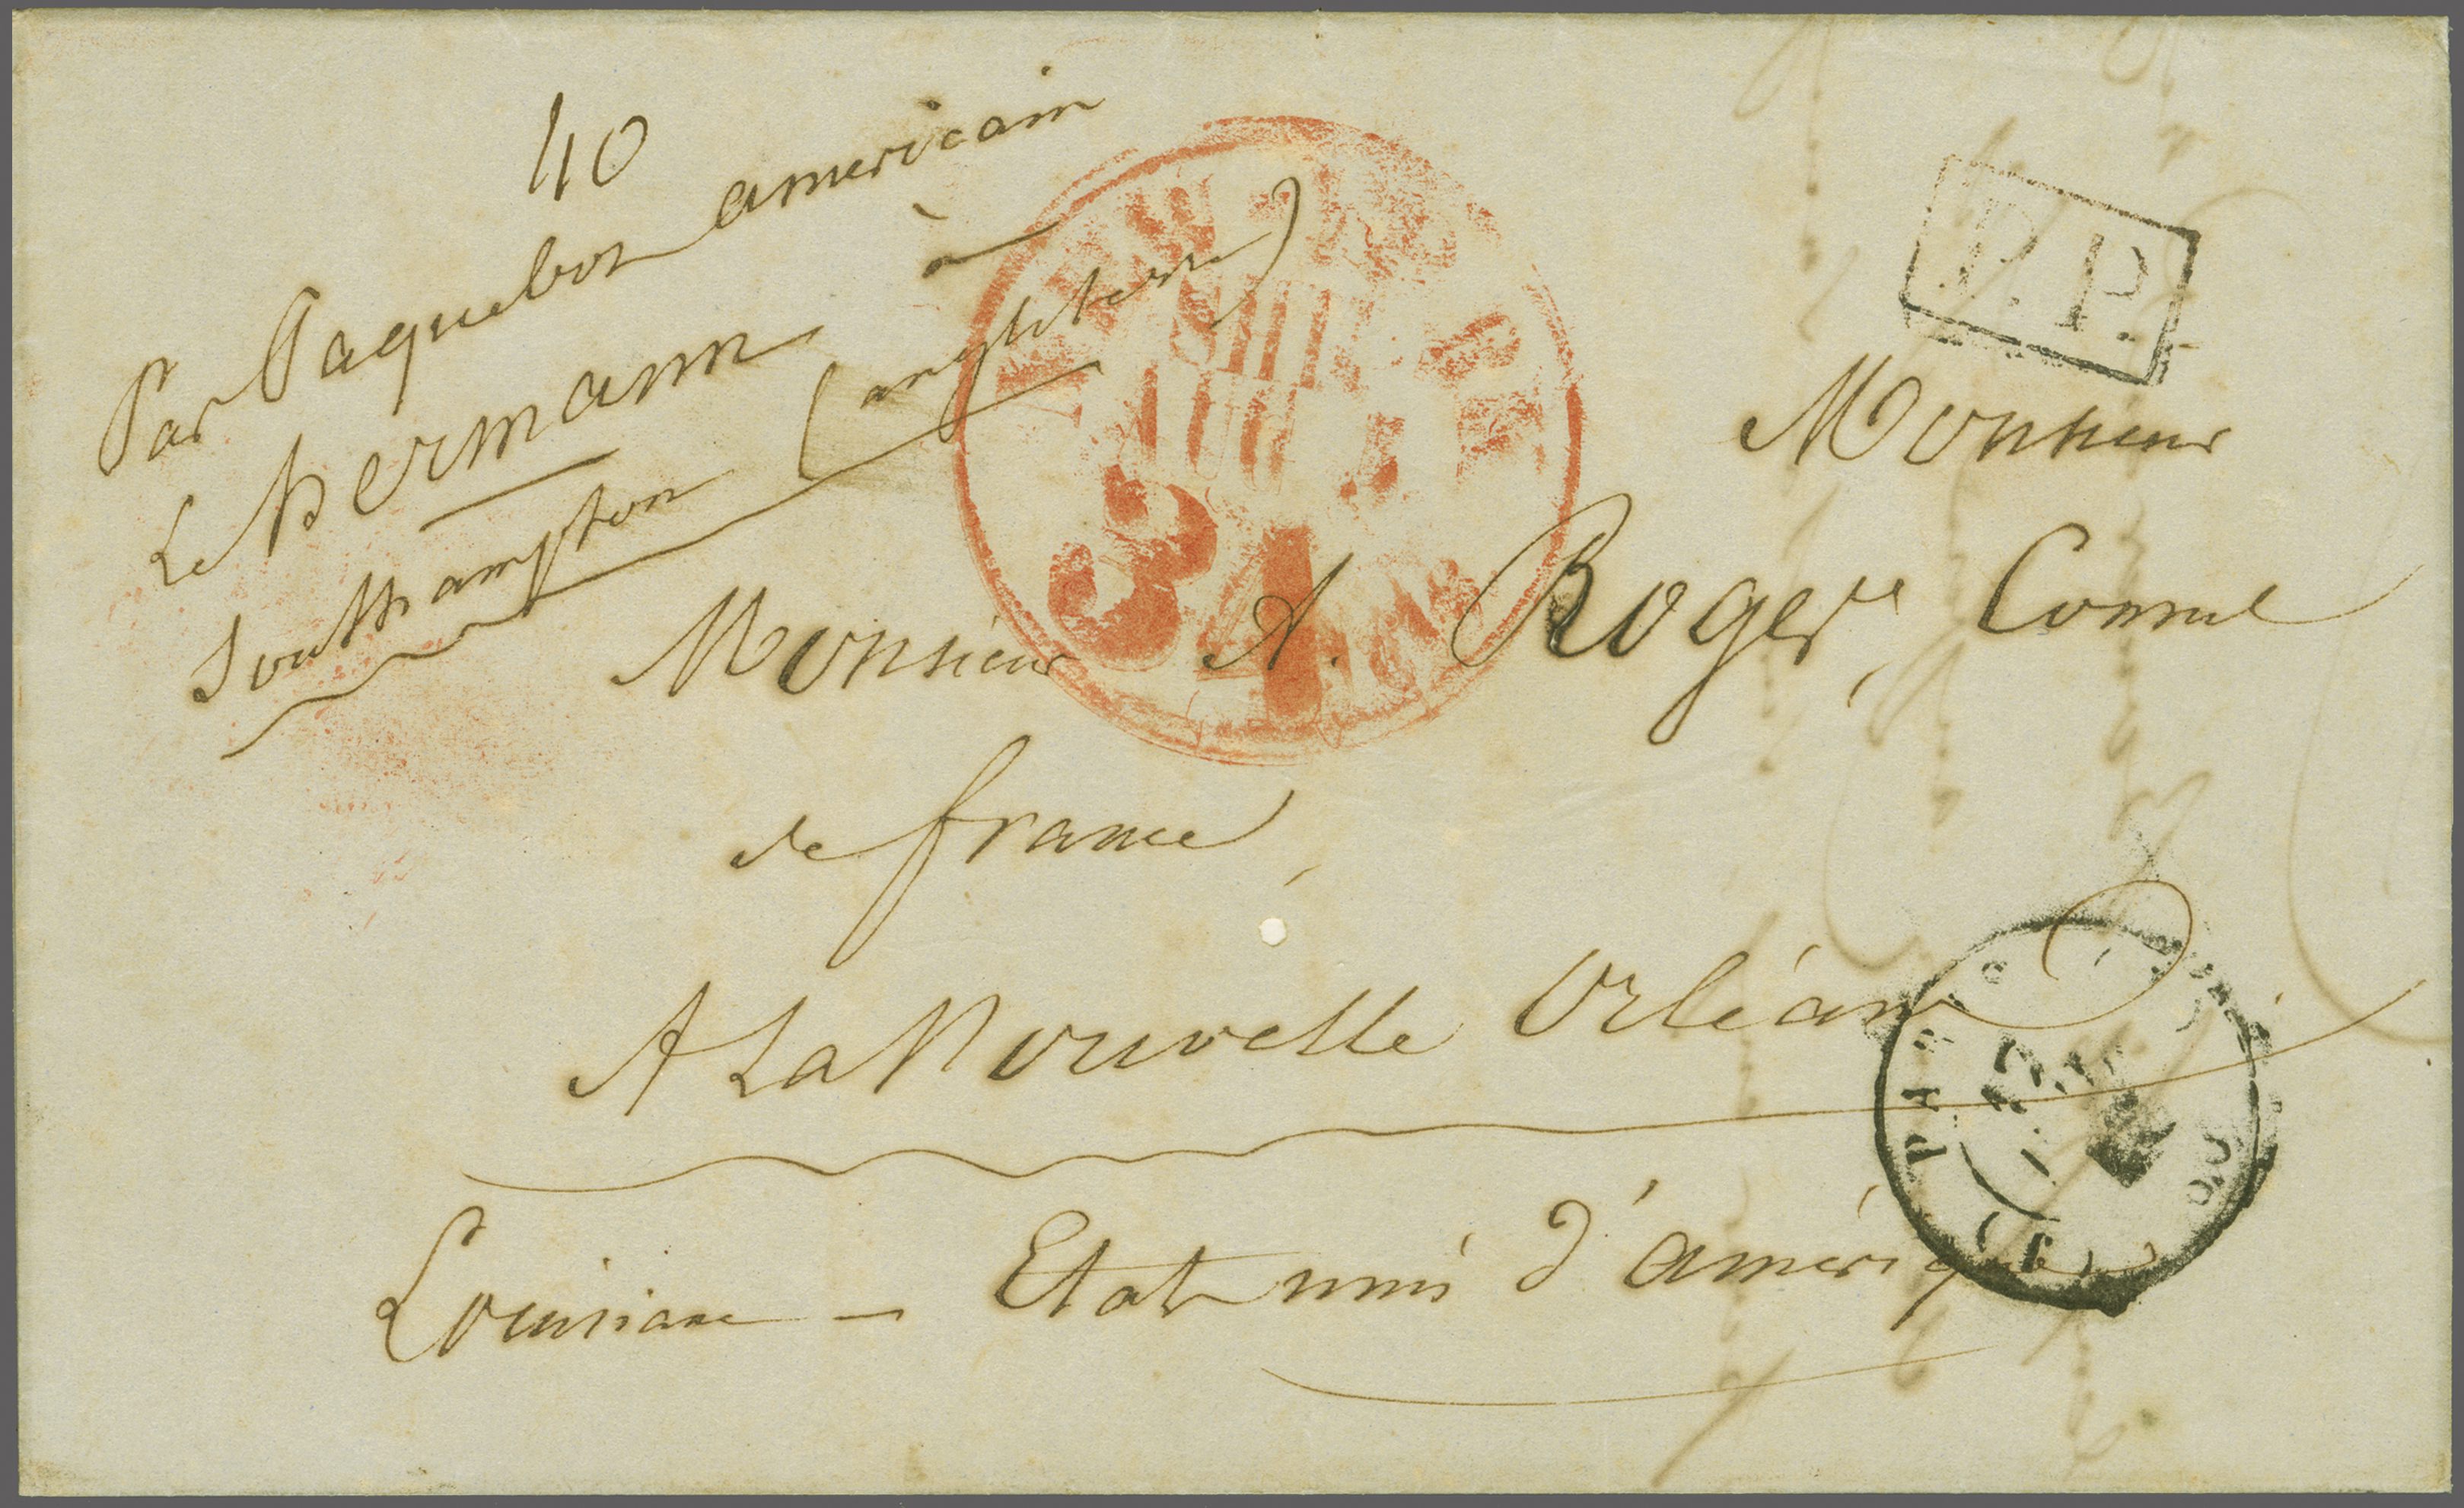 40
Par Paquebot americain
Le hermann à
Southampton (angleterre)
P.P.
Monsieur
Monsieur A. Roger, Consul
de france,
A La Nouvelle Orléans
Louisiane - Etats unis d'amérique
NEW
34
PARIS
60